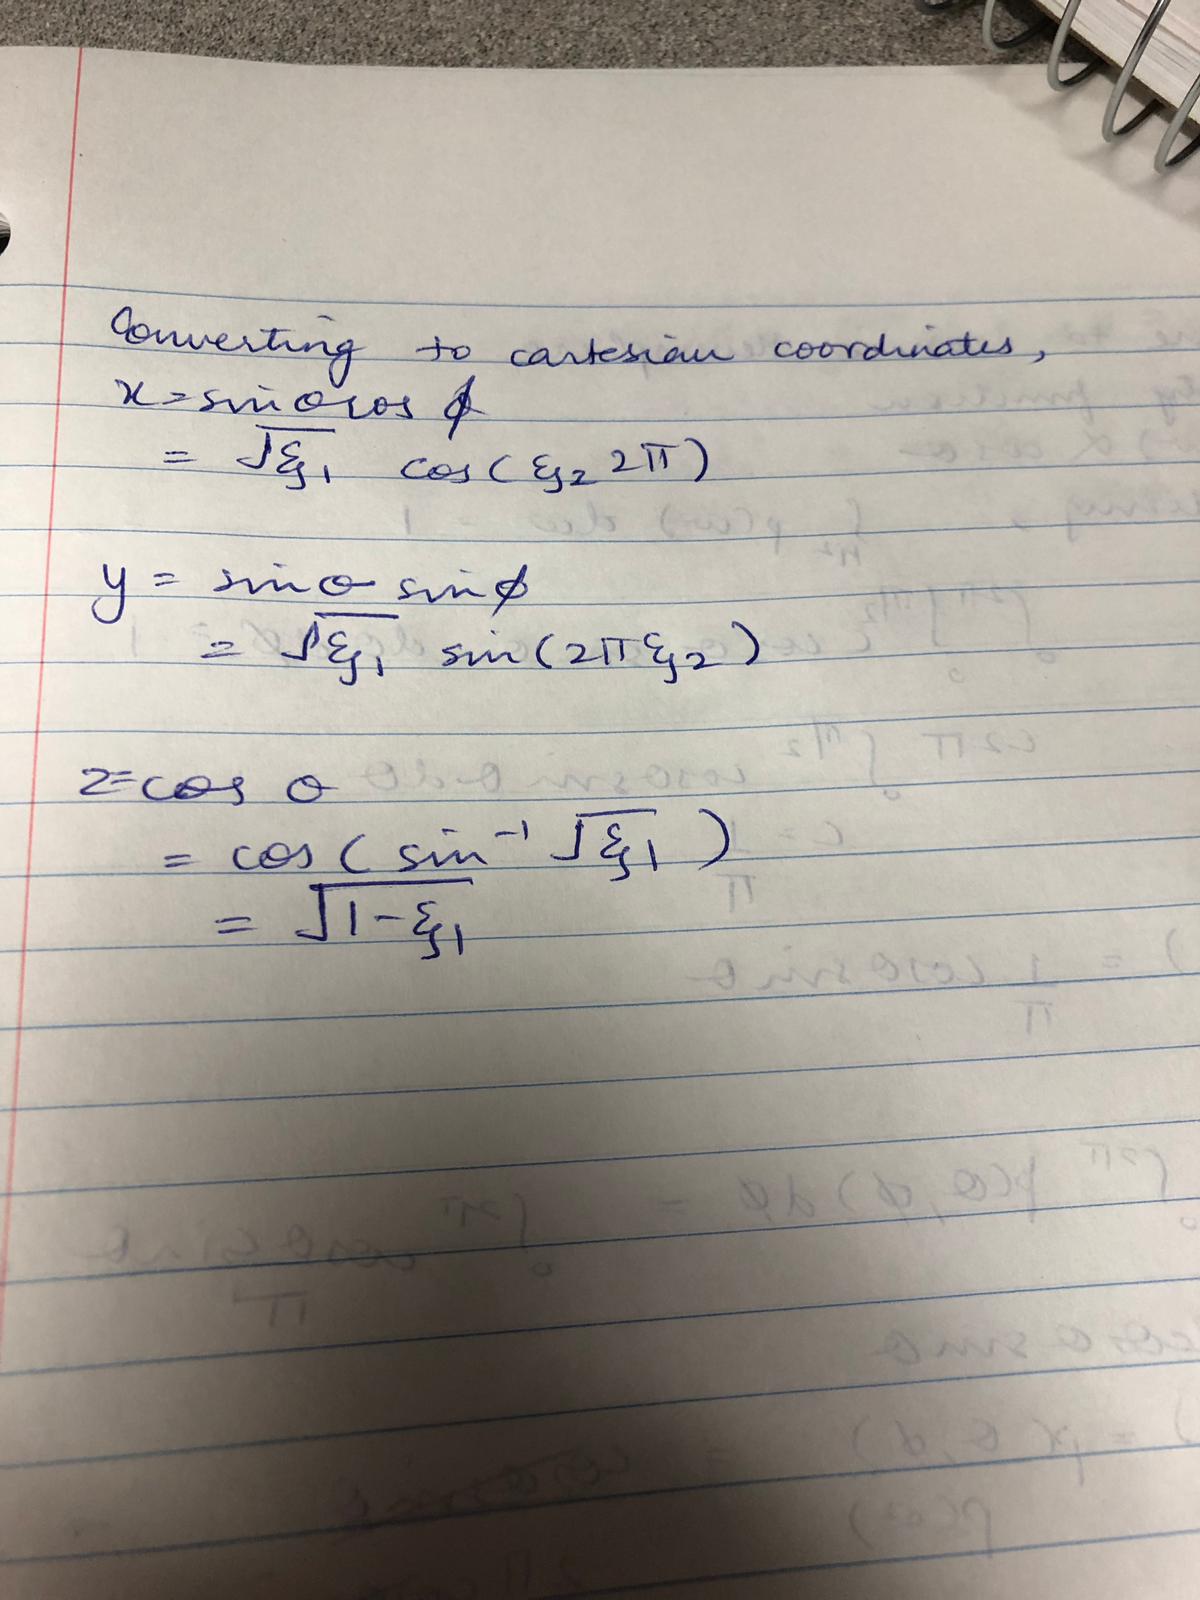 Converting to cartesian coordinates,
x = sinθ cos ϕ
= √ξ₁ cos(ξ₂ 2π)
y = sinθ sinϕ
= √ξ₁ sin(2πξ₂)
z = cos θ
= cos(sin⁻¹ √ξ₁)
= √(1-ξ₁)